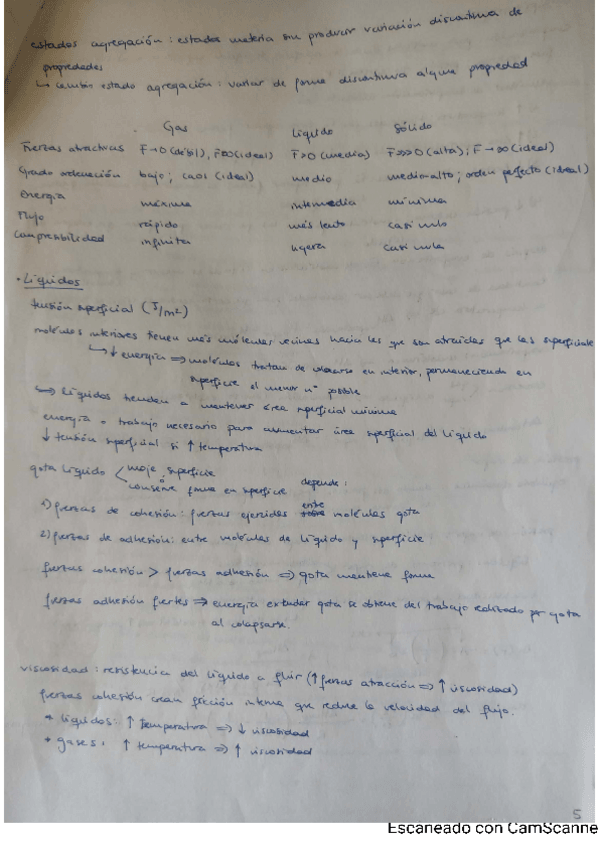 estados agregación: estados materia sin producir variación discontinua de
propiedades
↳ cambio estado agregación: variar de forma discontinua alguna propiedad
Gas Líquido Sólido
Fuerzas atractivas F→0 (débil), F=0 (ideal) F>0 (media) F>>>0 (alta); F→∞ (ideal)
Grado ordenación bajo; caos (ideal) medio medio-alto; orden perfecto (ideal)
Energía máxima intermedia mínima
Flujo rápido más lento casi nulo
Compresibilidad infinita ligera casi nula
• Líquidos
tensión superficial (J/m²)
moléculas interiores tienen más moléculas vecinas hacia las que son atraídas que las superficiales
↳ ↓ energía ⇒ moléculas tratan de colocarse en interior, permaneciendo en
superficie el menor nº posible
↳ Líquidos tienden a mantener área superficial mínima
energía o trabajo necesario para aumentar área superficial del líquido
↓ tensión superficial si ↑ temperatura
gota líquido < moje superficie
o
conserve forma en superficie depende:
1) fuerzas de cohesión: fuerzas ejercidas entre moléculas gota
2) fuerzas de adhesión: entre moléculas de líquido y superficie
fuerzas cohesión > fuerzas adhesión ⇒ gota mantiene forma
fuerzas adhesión fuertes ⇒ energía extender gota se obtiene del trabajo realizado por gota
al colapsarse.
viscosidad: resistencia del líquido a fluir (↑ fuerzas atracción ⇒ ↑ viscosidad)
fuerzas cohesión crean fricción interna que reduce la velocidad del flujo.
* líquidos: ↑ temperatura ⇒ ↓ viscosidad
* gases: ↑ temperatura ⇒ ↑ viscosidad
5
Escaneado con CamScanne